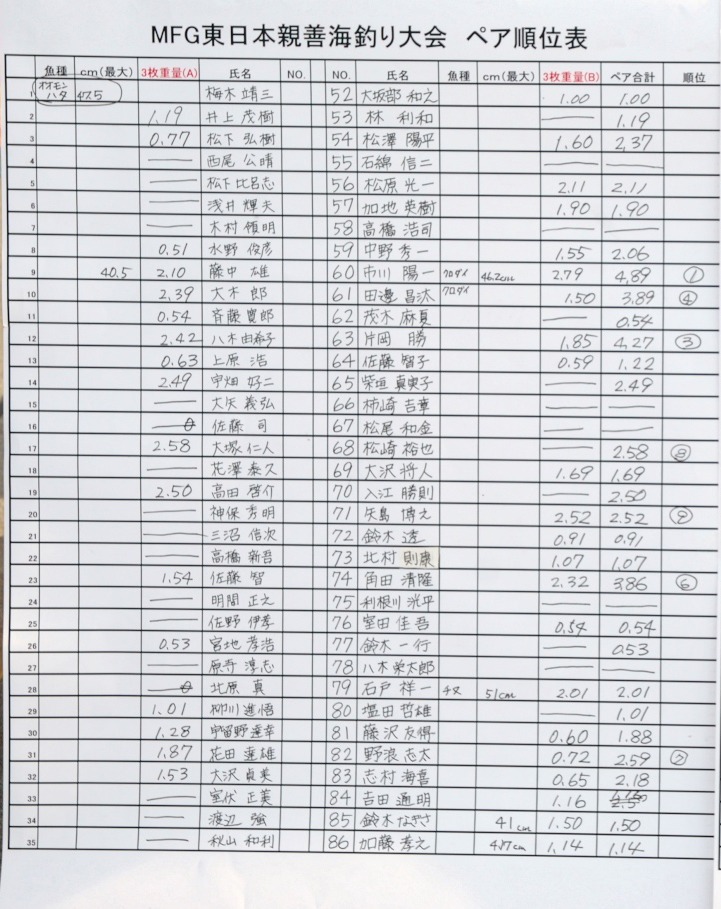 MFG東日本親善海釣り大会 ペア順位表
魚種 cm(最大) 3枚重量(A) 氏名 NO. NO. 氏名 魚種 cm(最大) 3枚重量(B) ペア合計 順位
1 オオモンハタ 47.5 梅木 靖三 52 大坂部 和之 1.00 1.00
2 1.19 井上 茂樹 53 林 利和 — 1.19
3 0.77 松下 弘樹 54 松澤 陽平 1.60 2.37
4 — 西尾 公晴 55 石綿 信二 — —
5 — 松下 比呂志 56 松原 光一 2.11 2.11
6 — 浅井 輝夫 57 加地 英樹 1.90 1.90
7 — 木村 領明 58 高橋 浩司 —
8 0.51 水野 俊彦 59 中野 秀一 1.55 2.06
9 40.5 2.10 藤中 雄 60 市川 陽一 クロダイ 46.2cm 2.79 4.89 ①
10 2.39 大木 郎 61 田邊 昌汰 クロダイ 1.50 3.89 ④
11 0.54 斉藤 寛郎 62 茂木 麻夏 — 0.54
12 2.42 八木 由希子 63 片岡 勝 1.85 4.27 ③
13 0.63 上原 浩 64 佐藤 智子 0.59 1.22
14 2.49 宇畑 好二 65 柴垣 真実子 — 2.49
15 — 大矢 義弘 66 柿崎 吉章 — —
16 0 佐藤 司 67 松尾 和金 — —
17 2.58 大塚 仁人 68 松崎 裕也 — 2.58 ⑧
18 — 花澤 泰久 69 大沢 将人 1.69 1.69
19 2.50 高田 啓介 70 入江 勝則 — 2.50
20 — 神保 秀明 71 矢島 博之 2.52 2.52 ⑨
21 — 三沼 信次 72 鈴木 透 0.91 0.91
22 — 高橋 新吾 73 北村 則康 1.07 1.07
23 1.54 佐藤 智 74 角田 清隆 2.32 3.86 ⑥
24 — 明間 正之 75 利根川 洸平 — —
25 — 佐野 伊孝 76 室田 佳吾 0.54 0.54
26 0.53 宮地 孝浩 77 鈴木 一行 — 0.53
27 — 原寺 淳志 78 八木 栄太郎 — —
28 0 北原 真 79 石戸 祥一 チヌ 51cm 2.01 2.01
29 1.01 柳川 進悟 80 塩田 哲雄 — 1.01
30 1.28 宇留野 達幸 81 藤沢 友得 0.60 1.88
31 1.87 花田 達雄 82 野浪 志太 0.72 2.59 ⑦
32 1.53 大沢 貞美 83 志村 海喜 0.65 2.18
33 — 室伏 正美 84 吉田 通明 1.16
34 — 渡辺 強 85 鈴木 なぎさ 41cm 1.50 1.50
35 — 秋山 和利 86 加藤 孝之 1.14 1.14